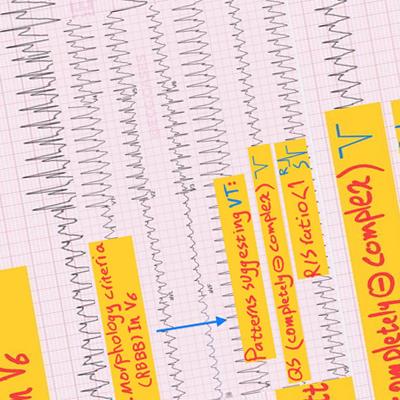 morphology criteria
(RBBB) In V6
Patterns suggesting VT:
QS (completely ⊖ complex) V
R/S ratio<1 R S
n V6
ompletely ⊖ complex) V